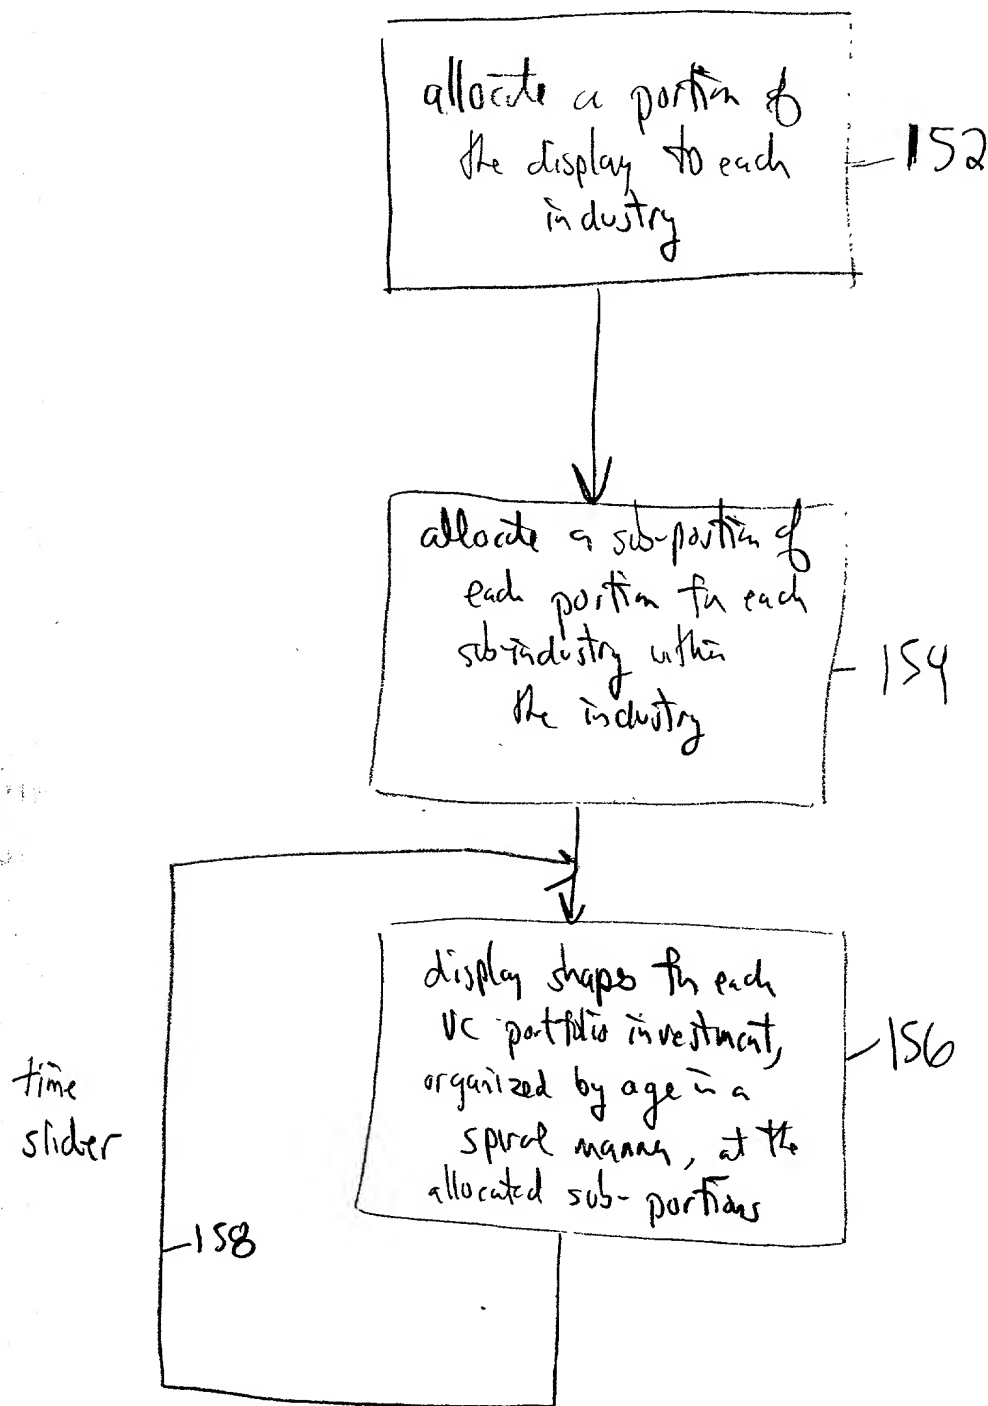 allocate a portion of
the display to each
industry
152
allocate a sub-portion of
each portion for each
sub-industry within
the industry
154
display shapes for each
VC portfolio investment,
organized by age in a
spiral manner, at the
allocated sub-portions
156
time
slider
158